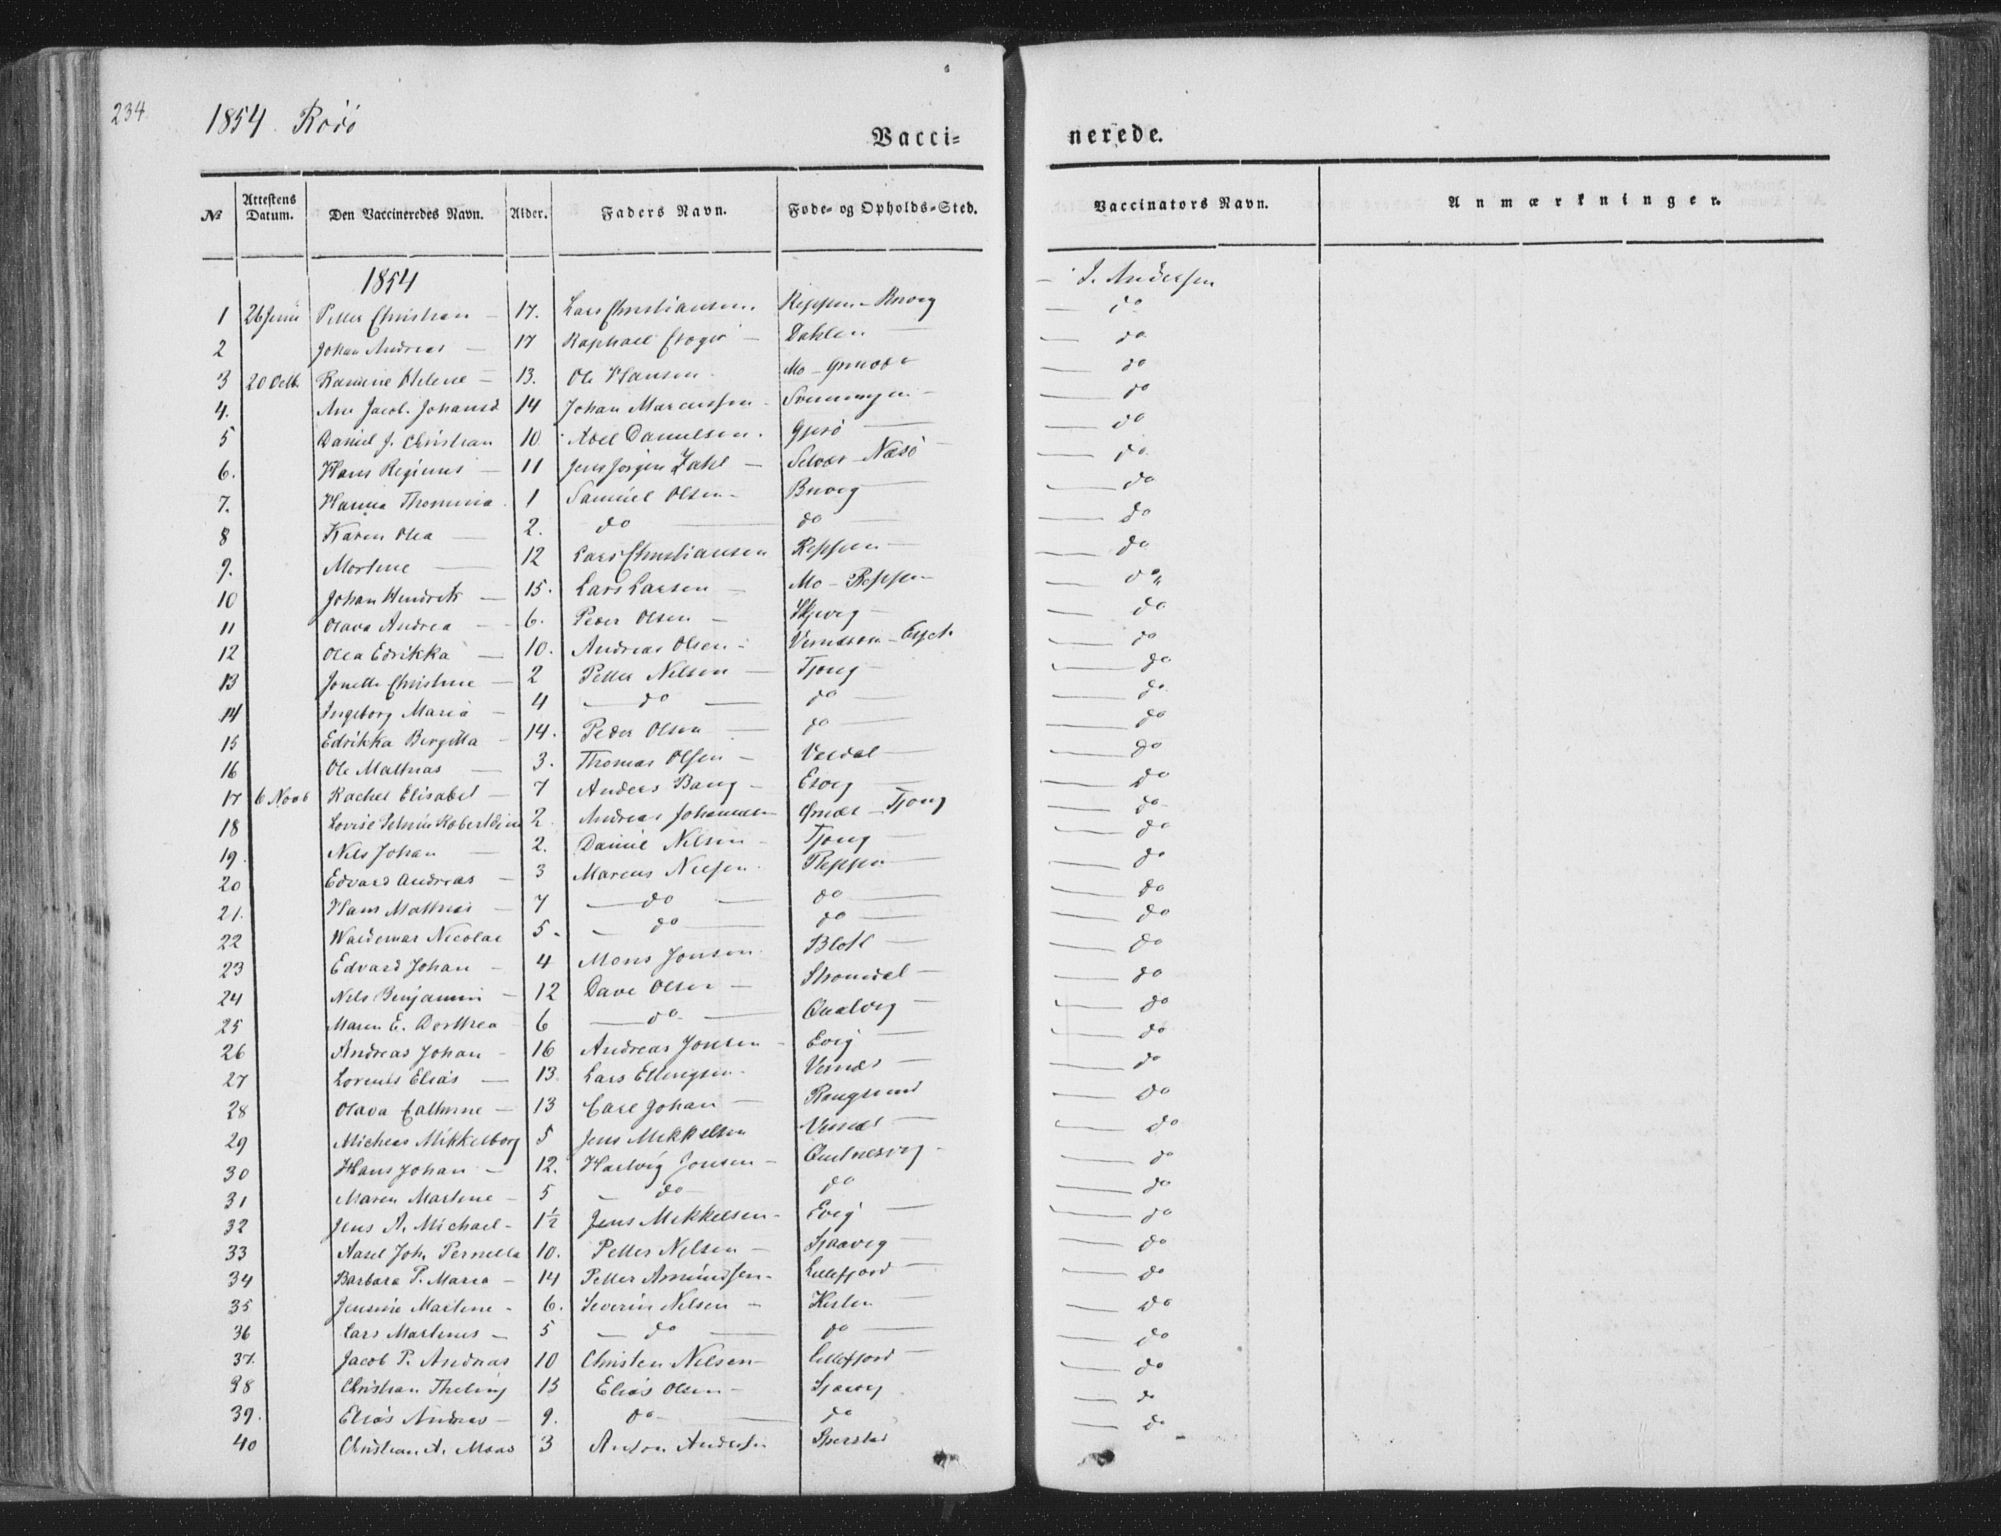 234
1854. Rödö
Vacci= nerede.
No Attestens Datum. Den Vaccineredes Navn. Alder. Faders Navn. Føde= og Opholds=Sted. Vaccinators Navn. Anmærkninger.
1854
1 26 Juni Petter Christian — 17. Lars Christiansen. Reppen — J. Andersen
2 Johan Andreas — 17 Raphael — Dahlen — do
3 20 Octb. Helene — 13. Ole Hansen Mo — do
4. Ane Jacob. Johansd 14 Johan Marcussen Svenningen — do
5 Daniel J. Christian 10 Abel Danielsen. Gjerö — do
6. Hans Reginus — 11 Jens Jörgen Zahl — Selvær — Næsö do
7. Hanna Thomina 1 Samuel Olsen — do
8 Karen Olea — 2. do — do — do
9. Mortine — 12 Lars Christiansen Reppen — do
10 Johan Hendrik — 15. Lars Larsen — Mo — Reppen do
11 Olava Andrea — 6. Peder Olsen — — do
12 Olea Edrikka — 10. Andreas Olsen — do
13 Jonette Christine — 2 Petter Nilsen — Tjong — do
14 Ingeborg Maria — 4 — do — do — do
15 Edrikka Bergitta — 14. Peder Olsen — do — do
16 Ole Mathias — 3. Thomas Olsen — Valdal — do
17 6 Novb Rachel Elisabet — 7 Anders Bang — Esvig — do
18 Lovise 2. Andreas Johannesen — Tjong do
19. Nils Johan — 2. Daniel Nilsen — Tjong — do
20 Edvard Andreas — 3 Marcus Nielsen. Reppen — do
21. Hans Mathias — 7 — do — do — do
22 Waldemar Nicolai 5. — do — do — do
23 Edvard Johan — 4 Mons Jonsen Blok — do
24 Nils Benjamin — 12 Dave Olsen — Stromdal — do
25 Maren E. Dorthea 6 — do — Qualvig — do
26 Andreas Johan — 16 Andreas Jonsen — Evig — do
27 Lorents Elias — 13. Lars Ellingsen. Vernæs — do
28 Olava Cathrine — 13 Carl Johan — Rangsund do
29 Micheas Mikkelborg 5 Jens Mikkelsen Vernæs — do
30 Hans Johan — 12. Hartvig Jonsen — do
31 Maren Martine — 5 — do — do do
32 Jens A. Michael — 1½ Jens Mikkelsen — Evig — do
33 Aasel Joh. Pernella 10. Petter Nilsen — Sjaavig — do
34 Barbara P. Maria — 14 Petter Amundsen — Lillefjord — do
35 Jensine Martine — 6. Severin Nilsen — Heslen — do
36 Lars Martenus — 5 — do — do — do
37. Jacob P. Andreas 10 Christen Nilsen — Lillefjord — do
38 Christian Theling 13 Elias Olsen — Sjaavig do
39. Elias Andreas — 9. do — do do
40 Christian A. Moas 3 Anton Andersen Sperstad do